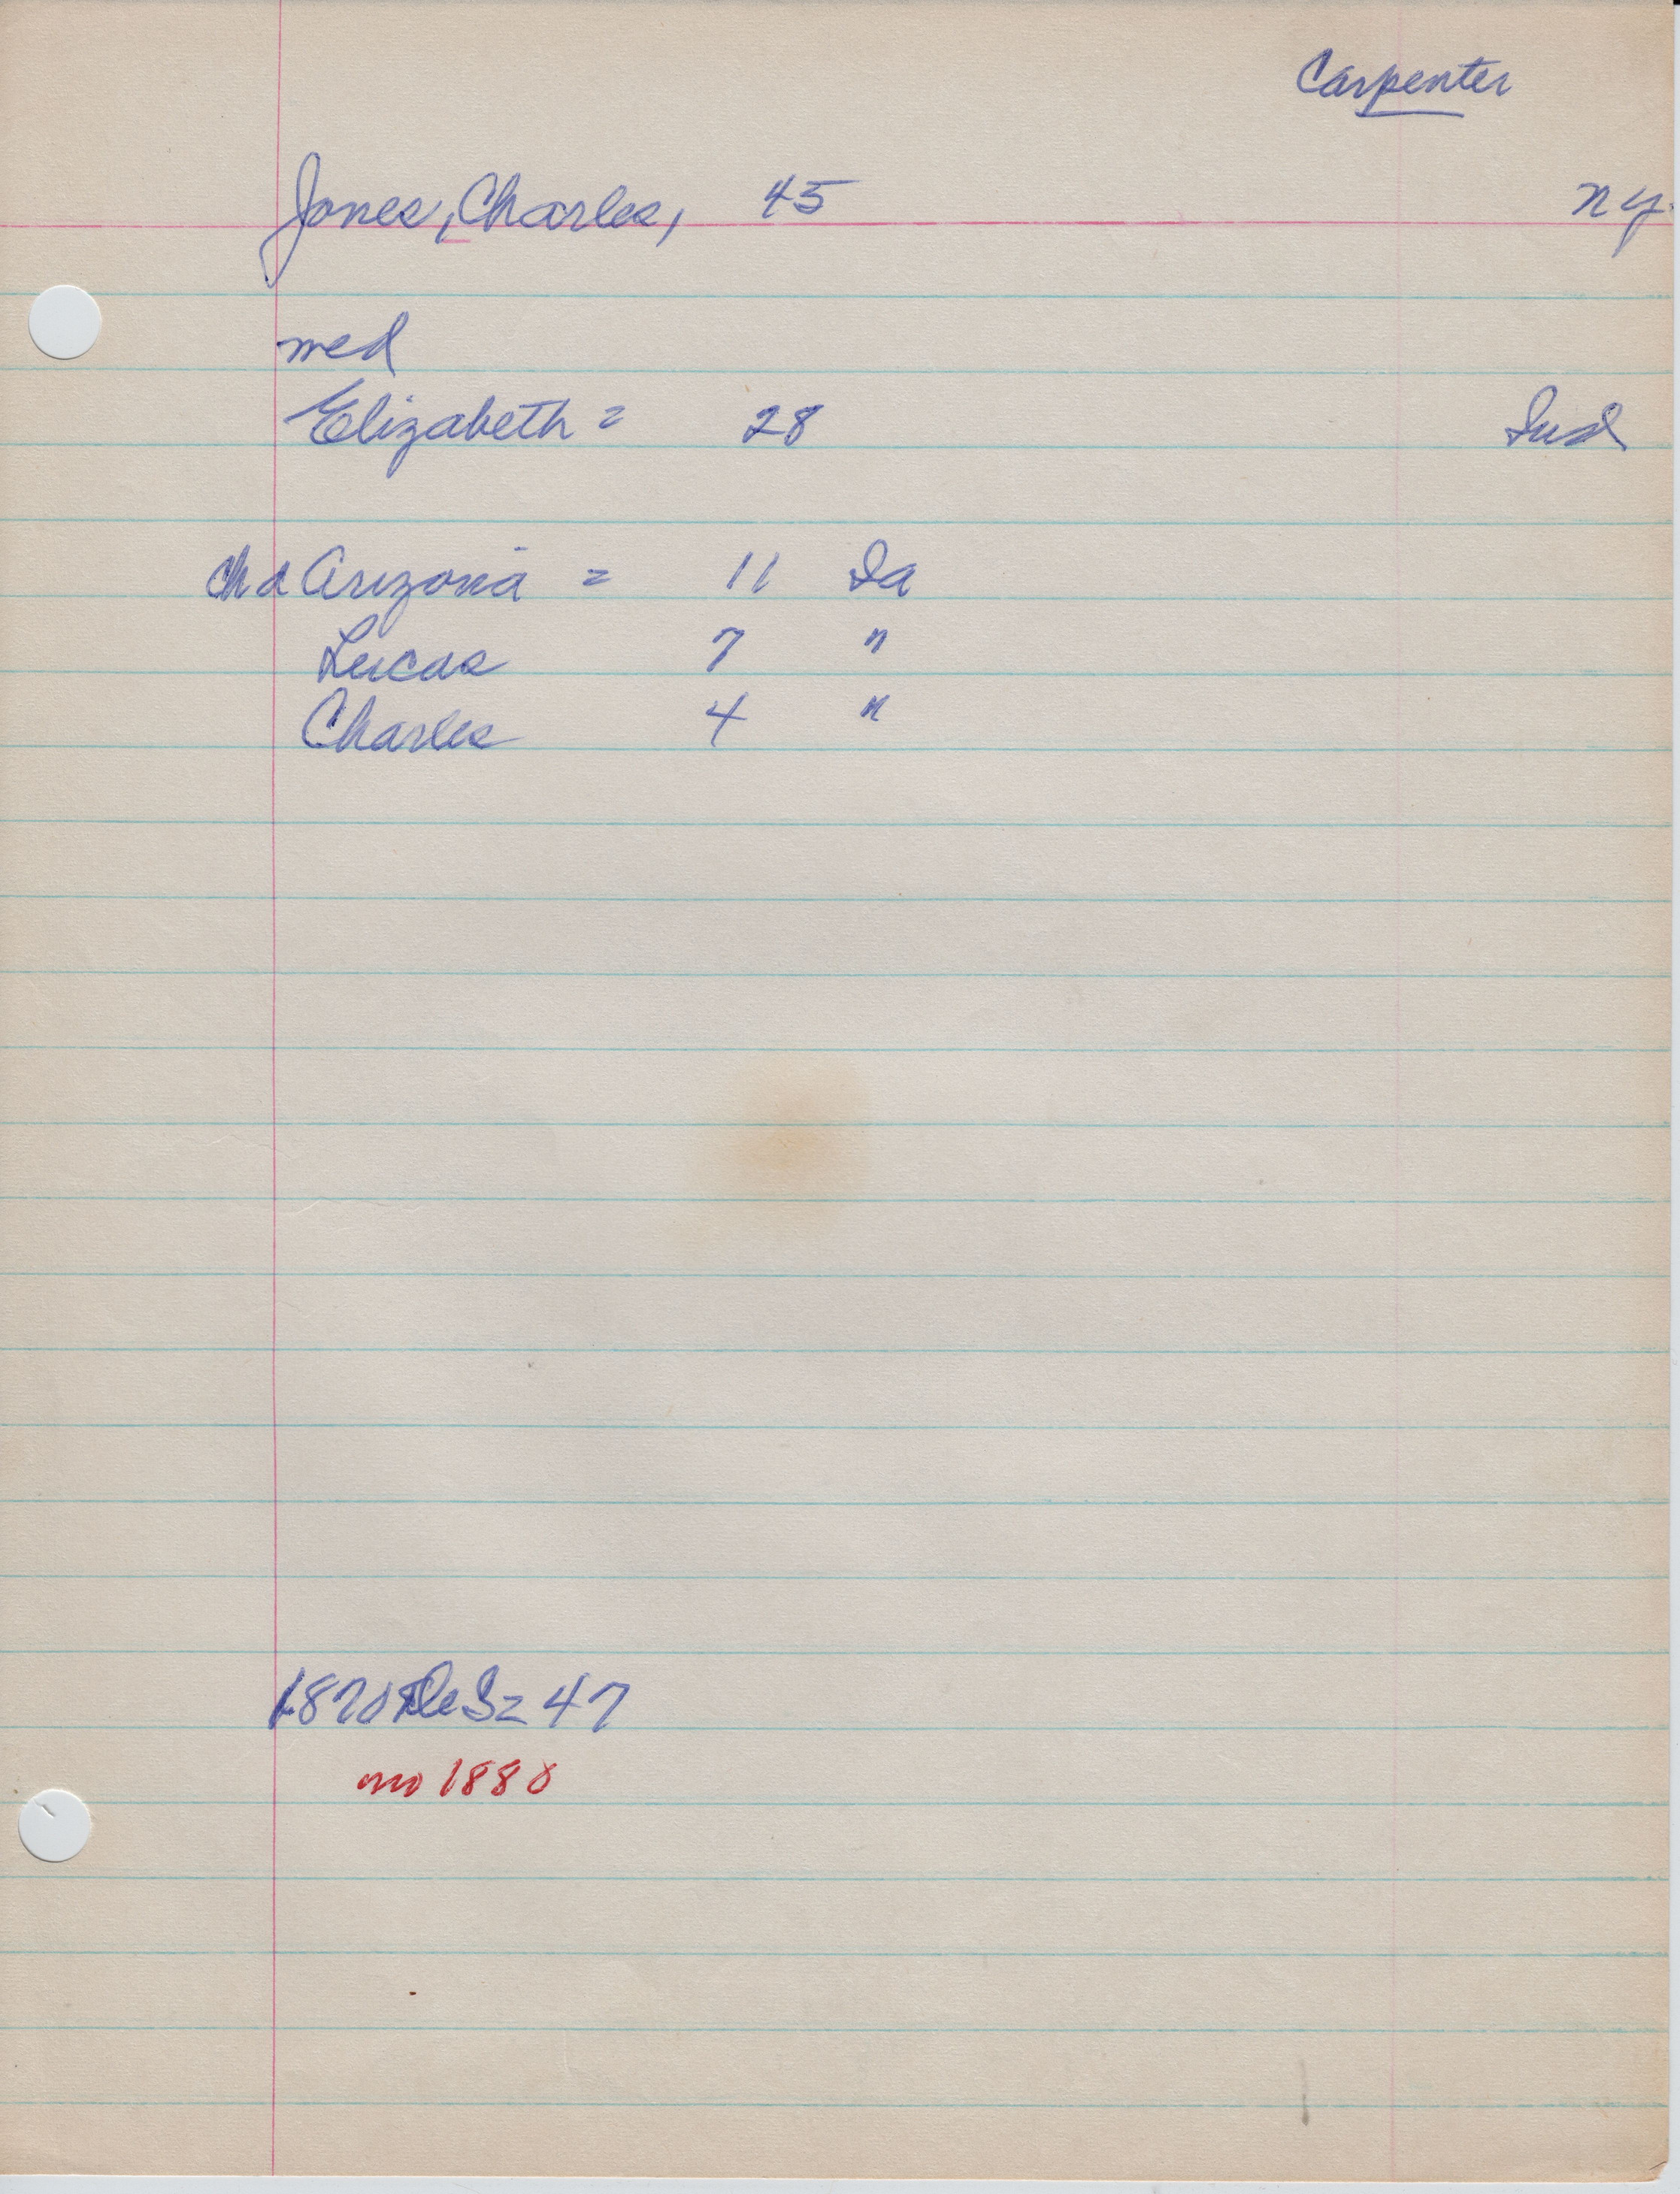 Carpenter
Jones, Charles, 45 ny.
med
Elizabeth = 28 Ind
Chd Arizona = 11 Ia
Lucas 7 "
Charles 4 "
1870 = 47
no 1880